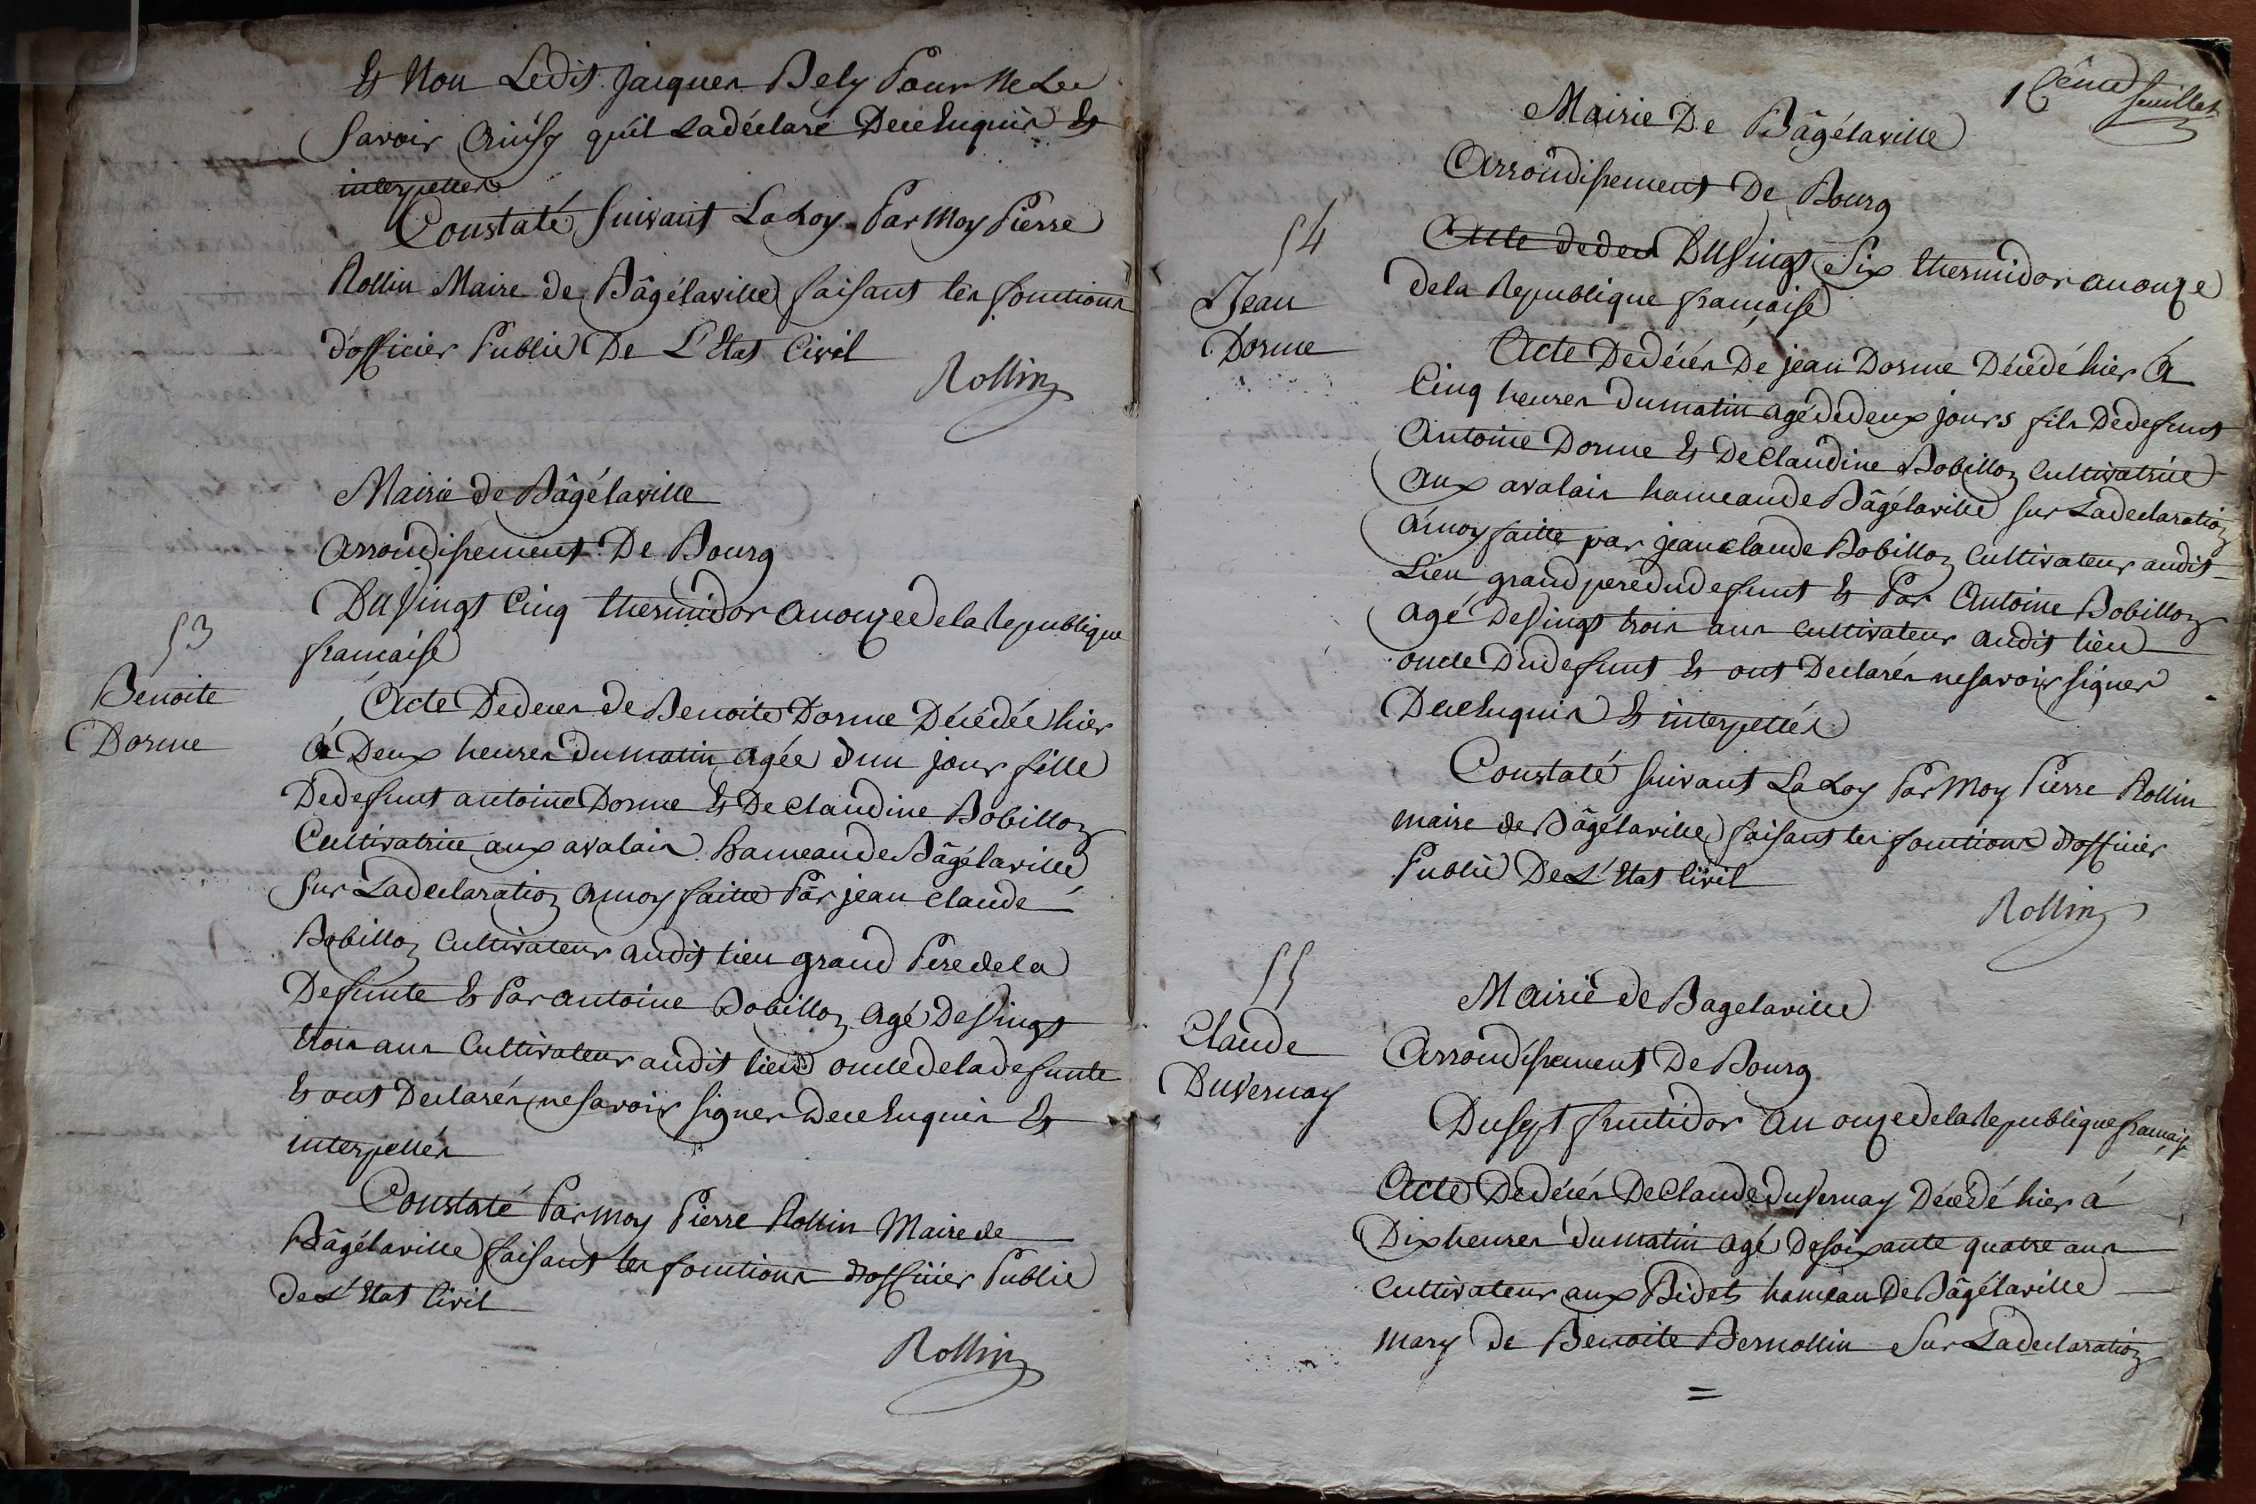 Et Non Ledit Jacques Bely Pour Ne Le
Savoir Ainsy qu'il La déclaré De ce Enquis Et
interpellé
Constaté Suivant La Loy Par Moy Pierre
Rollin Maire de Bâgélaville faisant les fonctions
d'officier Public De L'Etat Civil
Rollin
Mairie de Bâgélaville
Arrondissement De Bourg
Du Vingt Cinq thermidor an onze de la Republique
francaise
53
Benoite
Dorme
Acte De deces de Benoite Dorme Décédée hier
à Deux heures du matin agée d'un jour fille
De defunt antoine Dorme Et De Claudine Bobillon
Cultivatrice aux avalais hameau de Bâgélaville
Sur La declaration a moy faitte Par jean claude
Bobillon Cultivateur audit lieu grand Pere de la
Defunte Et Par antoine Bobillon agé De Vingt
trois ans Cultivateur audit lieu oncle de la defunte
Et ont Declarés ne savoir signer De ce Enquis Et
interpellés
Constaté Par moy Pierre Rollin Maire de
Bâgélaville faisant les fonctions d'officier Public
de L'Etat Civil
Rollin
16ême feuillet
Mairie De Bâgélaville
Arrondissement De Bourg
54
Jean
Dorme
Acte de deces Du Vingt Six thermidor an onze
de la Republique française
Acte De décés De jean Dorme Décédé hier à
Cinq heures du matin agé de deux jours fils De defunt
Antoine Dorme Et De Claudine Bobillon Cultivatrice
aux avalais hameau de Bâgélaville sur La declaration
à moy faitte par jean claude Bobillon Cultivateur audit
Lieu grand pere du defunt Et Par Antoine Bobillon
agé De Vingt trois ans cultivateur audit lieu
oncle Du defunt Et ont Declarés ne savoir signer
De ce Enquis Et interpellés
Constaté suivant La Loy Par Moy Pierre Rollin
maire de Bâgélaville faisant les fonctions d'officier
Public De L'Etat Civil
Rollin
55
Claude
Duvernay
Mairie de Bagelaville
Arrondissement De Bourg
Du Sept fructidor an onze de la Republique français
Acte De décés De Claude duvernay Décédé hier à
Dix heures du matin agé De soixante quatre ans
Cultivateur aux Bidets hameau De Bâgélaville
mary de Benoite Bernollin Sur La declaration
=